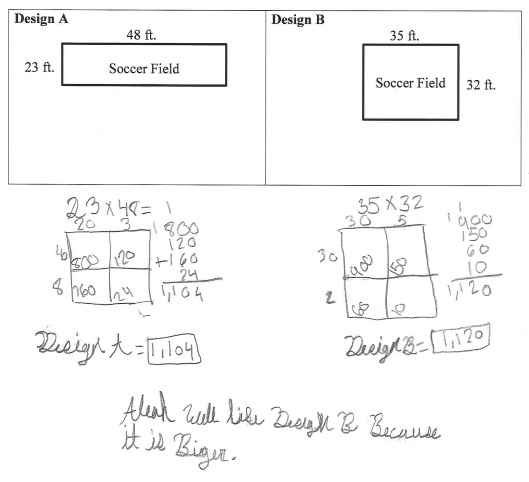 Design A
48 ft.
23 ft.
Soccer Field
Design B
35 ft.
Soccer Field
32 ft.
23 x 48 =
20 3
40 800 120
8 160 24
1
800
120
+160
24
1,104
Design A = 1,104
35 x 32
30 5
30 900 150
2 60 10
1
1 900
150
60
10
1,120
Design B = 1,120
will like Design B Because
it is Biger.